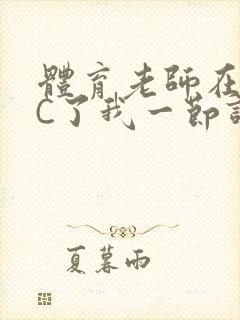 體育老師在
C了我一節
夏暮雨